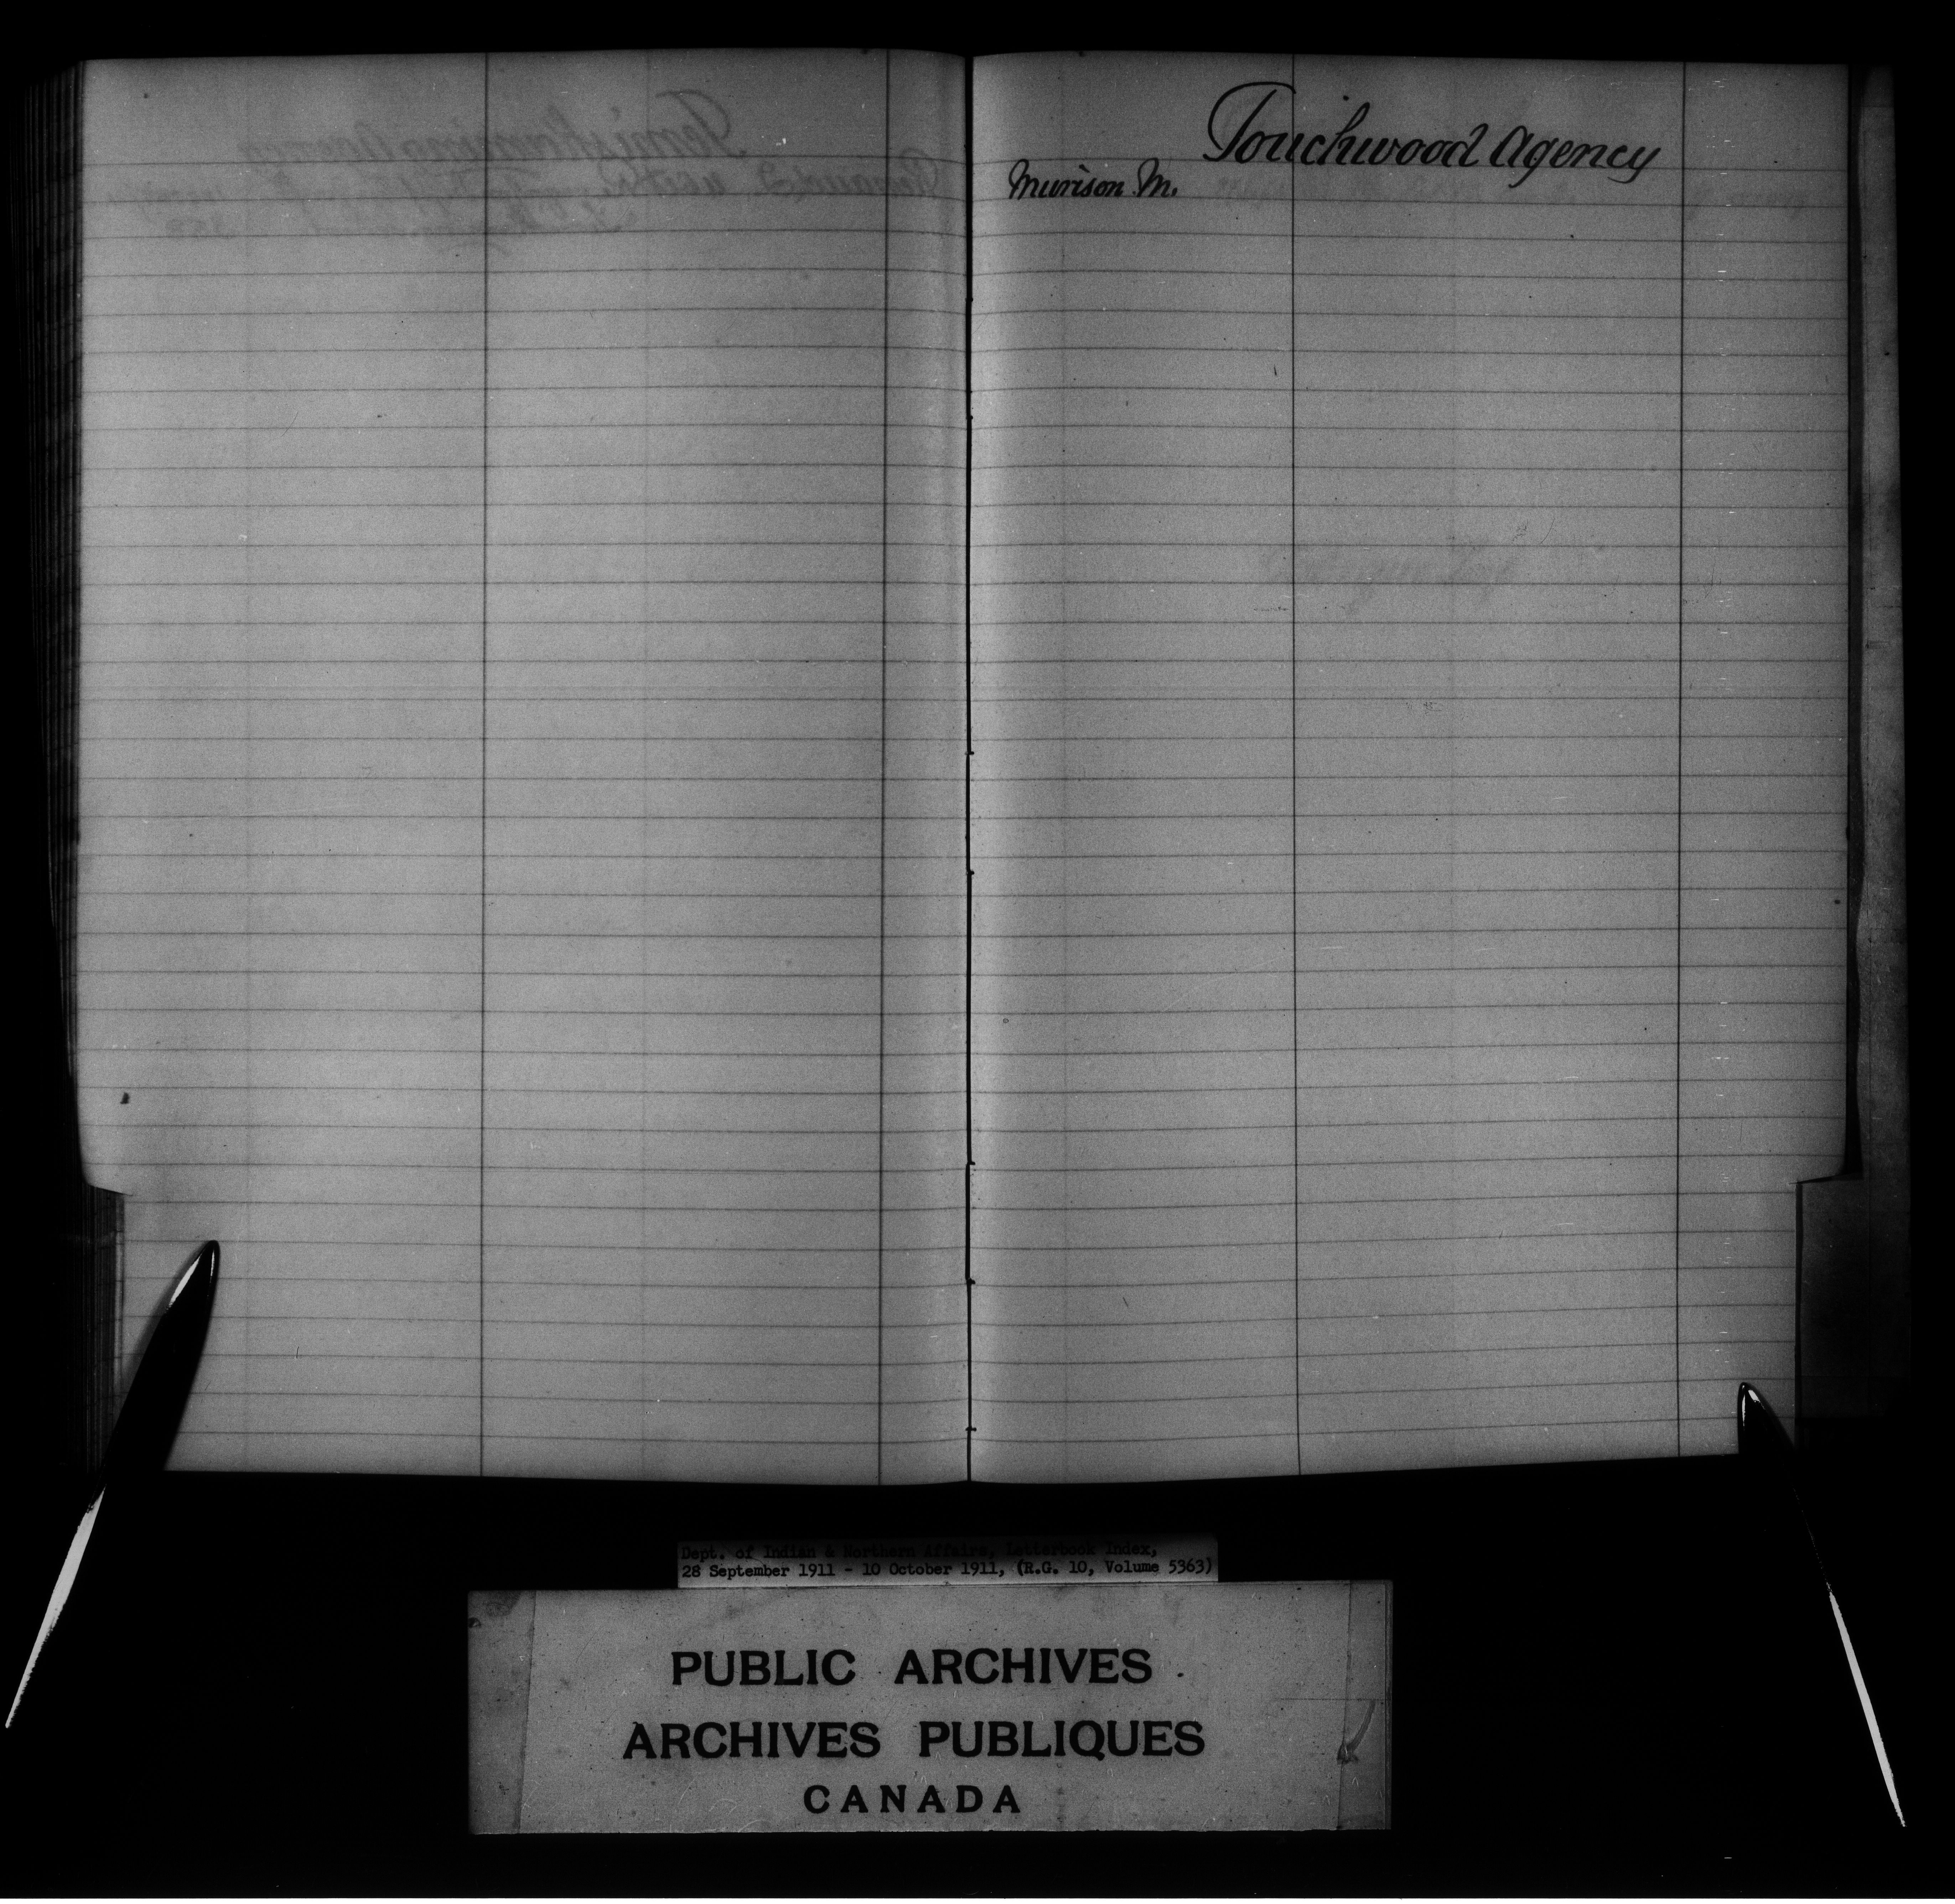 Touchwood Agency
Murison M.
Dept. of Indian & Northern Affairs, Letterbook Index,
28 September 1911 - 10 October 1911, (R.G. 10, Volume 5363)
PUBLIC ARCHIVES
ARCHIVES PUBLIQUES
CANADA